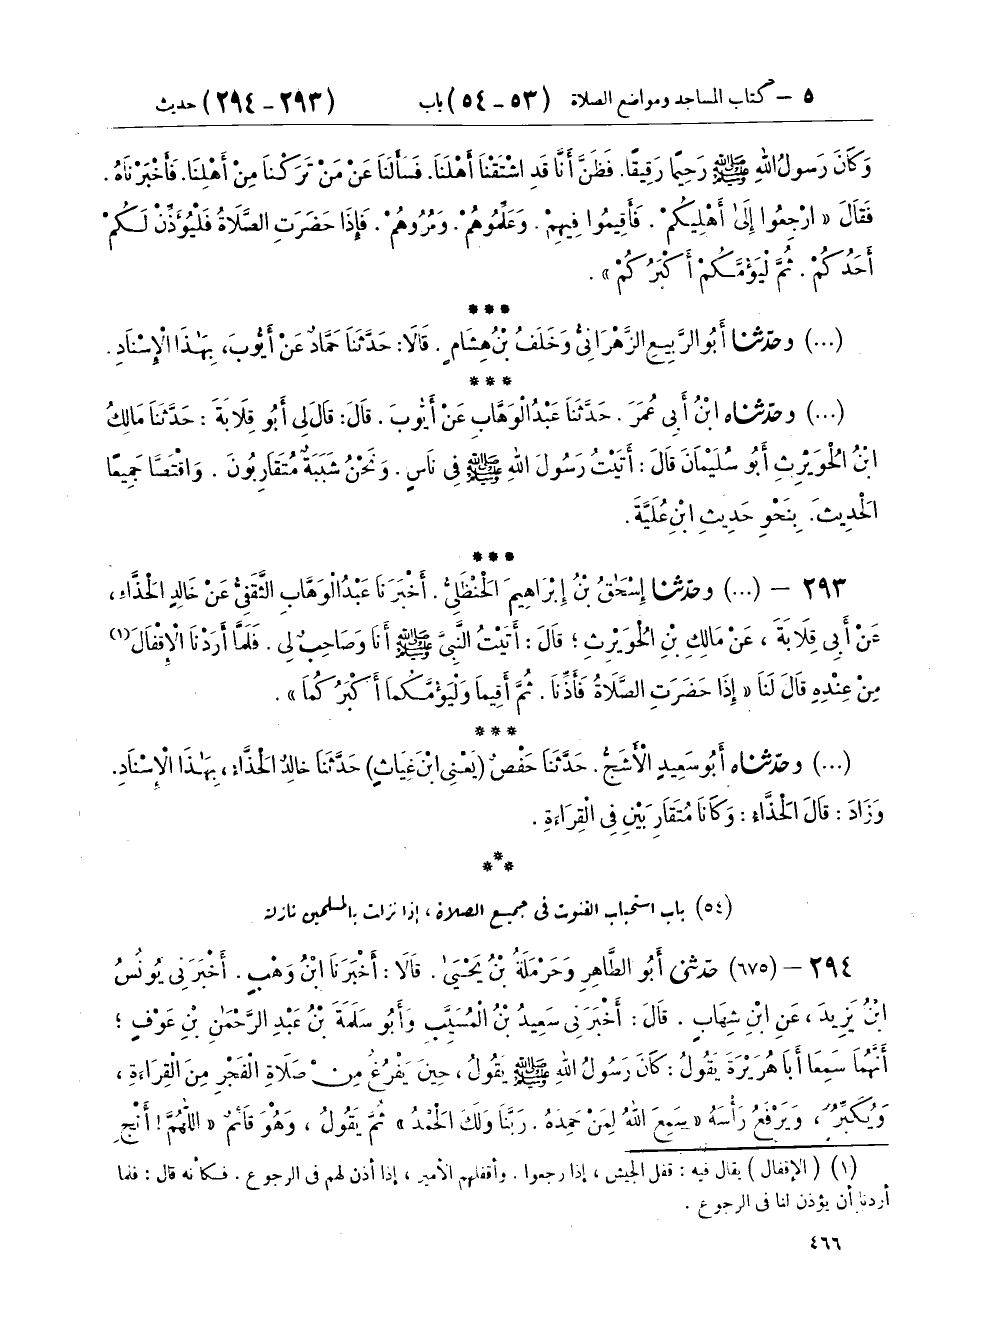 ٥ - كتاب المساجد ومواضع الصلاة (٥٣ - ٥٤) باب (٢٩٣ - ٢٩٤) حديث
وَكَانَ رَسُولُ اللهِ ﷺ رَحِيمًا رَقِيقًا. فَظَنَّ أَنَّا قَدِ اشْتَقْنَا أَهْلَنَا. فَسَأَلَنَا عَنْ مَنْ تَرَكْنَا مِنْ أَهْلِنَا. فَأَخْبَرْنَاهُ.
فَقَالَ « ارْجِعُوا إِلَىٰ أَهْلِيكُمْ . فَأَقِيمُوا فِيهِمْ . وَعَلِّمُوهُمْ . وَمُرُوهُمْ . فَإِذَا حَضَرَتِ الصَّلَاةُ فَلْيُؤَذِّنْ لَكُمْ
أَحَدُكُمْ . ثُمَّ لْيَؤُمَّكُمْ أَكْبَرُكُمْ » .
***
(...) وحدّثنا أَبُو الرَّبِيعِ الزَّهْرَانِيُّ وَخَلَفُ بْنُ هِشَامٍ . قَالَا: حَدَّثَنَا حَمَّادٌ عَنْ أَيُّوبَ، بِهَٰذَا الْإِسْنَادِ.
***
(...) وحدّثناه ابْنُ أَبِي عُمَرَ . حَدَّثَنَا عَبْدُ الْوَهَّابِ عَنْ أَيُّوبَ . قَالَ: قَالَ لِي أَبُو قِلَابَةَ : حَدَّثَنَا مَالِكُ
ابْنُ الْحُوَيْرِثِ أَبُو سُلَيْمَانَ قَالَ : أَتَيْتُ رَسُولَ اللهِ ﷺ فِي نَاسٍ . وَنَحْنُ شَبَبَةٌ مُتَقَارِبُونَ . وَاقْتَصَّا جَمِيعًا
الْحَدِيثَ. بِنَحْوِ حَدِيثِ ابْنِ عُلَيَّةَ .
***
٢٩٣ - (...) وحدّثنا إِسْحَٰقُ بْنُ إِبْرَاهِيمَ الْحَنْظَلِيُّ . أَخْبَرَنَا عَبْدُ الْوَهَّابِ الثَّقَفِيُّ عَنْ خَالِدٍ الْحَذَّاءِ ،
عَنْ أَبِي قِلَابَةَ ، عَنْ مَالِكِ بْنِ الْحُوَيْرِثِ ؛ قَالَ : أَتَيْتُ النَّبِيَّ ﷺ أَنَا وَصَاحِبٌ لِي . فَلَمَّا أَرَدْنَا الْإِقْفَالَ(١)
مِنْ عِنْدِهِ قَالَ لَنَا « إِذَا حَضَرَتِ الصَّلَاةُ فَأَذِّنَا . ثُمَّ أَقِيمَا وَلْيَؤُمَّكُمَا أَكْبَرُكُمَا » .
***
(...) وحدّثناه أَبُو سَعِيدٍ الْأَشَجُّ . حَدَّثَنَا حَفْصٌ (يَعْنِي ابْنَ غِيَاثٍ) حَدَّثَنَا خَالِدٌ الْحَذَّاءُ ، بِهَٰذَا الْإِسْنَادِ.
وَزَادَ : قَالَ الْحَذَّاءُ : وَكَانَا مُتَقَارِبَيْنِ فِي الْقِرَاءَةِ .
***
(٥٤) باب استحباب القنوت فى جميع الصلاة ، إذا نزلت بالمسلمين نازلة
٢٩٤ - (٦٧٥) حدّثنى أَبُو الطَّاهِرِ وَحَرْمَلَةُ بْنُ يَحْيَىٰ . قَالَا : أَخْبَرَنَا ابْنُ وَهْبٍ . أَخْبَرَنِي يُونُسُ
ابْنُ يَزِيدَ ، عَنِ ابْنِ شِهَابٍ . قَالَ : أَخْبَرَنِي سَعِيدُ بْنُ الْمُسَيَّبِ وَأَبُو سَلَمَةَ بْنُ عَبْدِ الرَّحْمَٰنِ بْنِ عَوْفٍ ؛
أَنَّهُمَا سَمِعَا أَبَا هُرَيْرَةَ يَقُولُ : كَانَ رَسُولُ اللهِ ﷺ يَقُولُ ، حِينَ يَفْرُغُ مِنْ صَلَاةِ الْفَجْرِ مِنَ الْقِرَاءَةِ ،
وَيُكَبِّرُ ، وَيَرْفَعُ رَأْسَهُ « سَمِعَ اللهُ لِمَنْ حَمِدَهُ . رَبَّنَا وَلَكَ الْحَمْدُ » ثُمَّ يَقُولُ ، وَهُوَ قَائِمٌ « اللَّهُمَّ ! أَنْجِ
(١) ( الإقفال ) يقال فيه : قفل الجيش ، إذا رجعوا . وأقفلهم الأمير ، إذا أذن لهم فى الرجوع . فكأنه قال : فلما
أردنا أن يؤذن لنا فى الرجوع .
٤٦٦